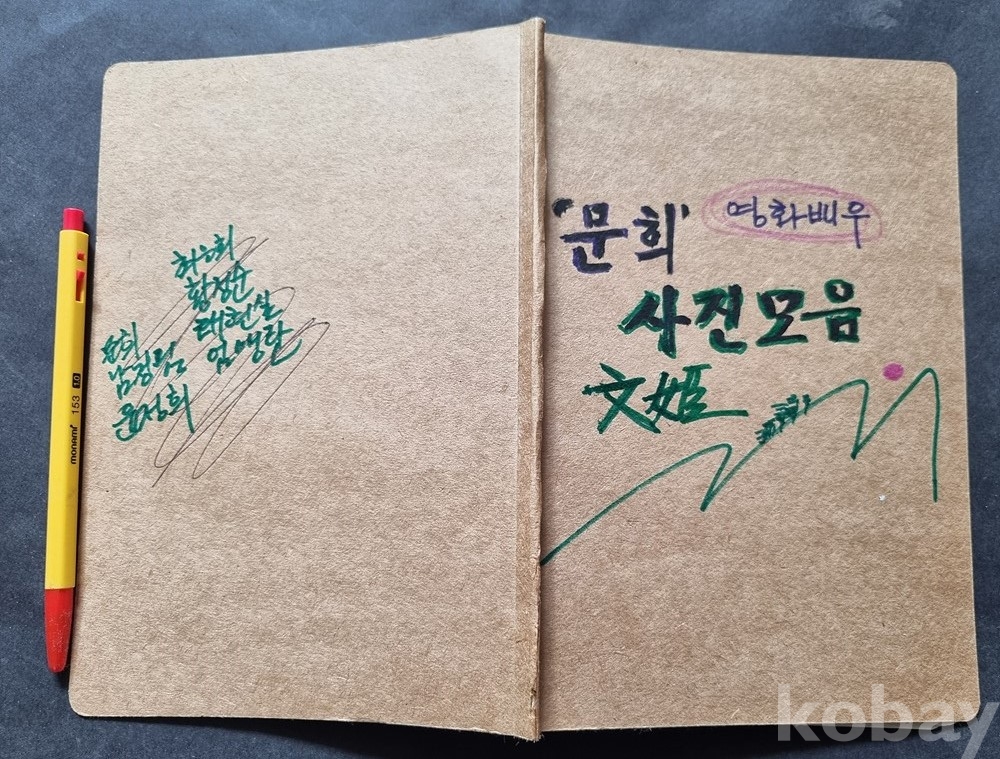 최은희
황정순
태현실
엄앵란
문희
남정임
윤정희
'문희' 영화배우
사진모음
文姬
monami 153 1.0
kobay